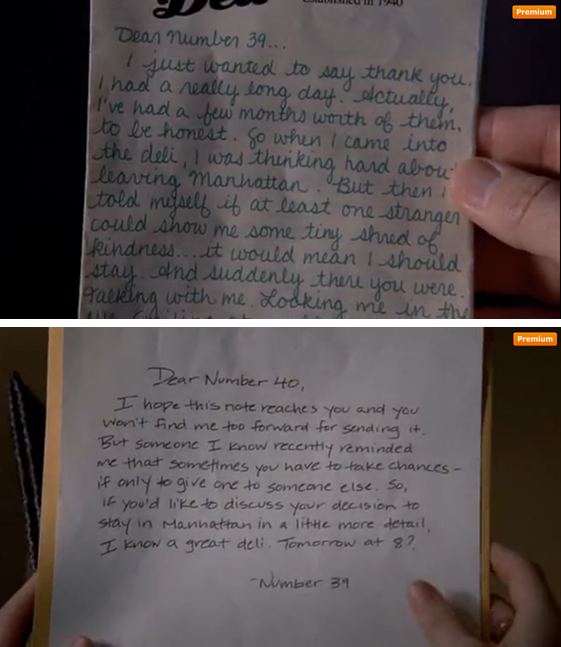 Established in 1940
Premium
Dear Number 39...
I just wanted to say thank you.
I had a really long day. Actually,
I've had a few months worth of them,
to be honest. So when I came into
the deli, I was thinking hard about
leaving Manhattan. But then I
told myself if at least one stranger
could show me some tiny shred of
kindness....it would mean I should
stay. And suddenly there you were.
Talking with me. Looking me in the
Premium
Dear Number 40,
I hope this note reaches you and you
won't find me too forward for sending it.
But someone I know recently reminded
me that sometimes you have to take chances-
if only to give one to someone else. So,
if you'd like to discuss your decision to
stay in Manhattan in a little more detail,
I know a great deli. Tomorrow at 8?
-Number 39